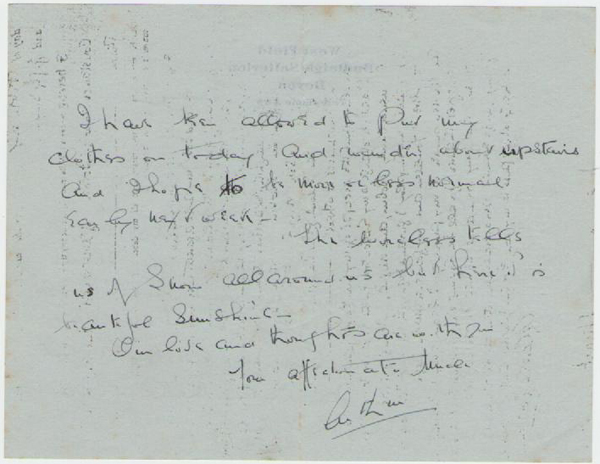 I have been allowed to put my
clothes on today and wander about upstairs
and I hope to be more or less normal
say by next week –
The wireless tells
us of snow all around us but here it is
beautiful sunshine –
Our love and thoughts are with you
Your affectionate Uncle
Arthur